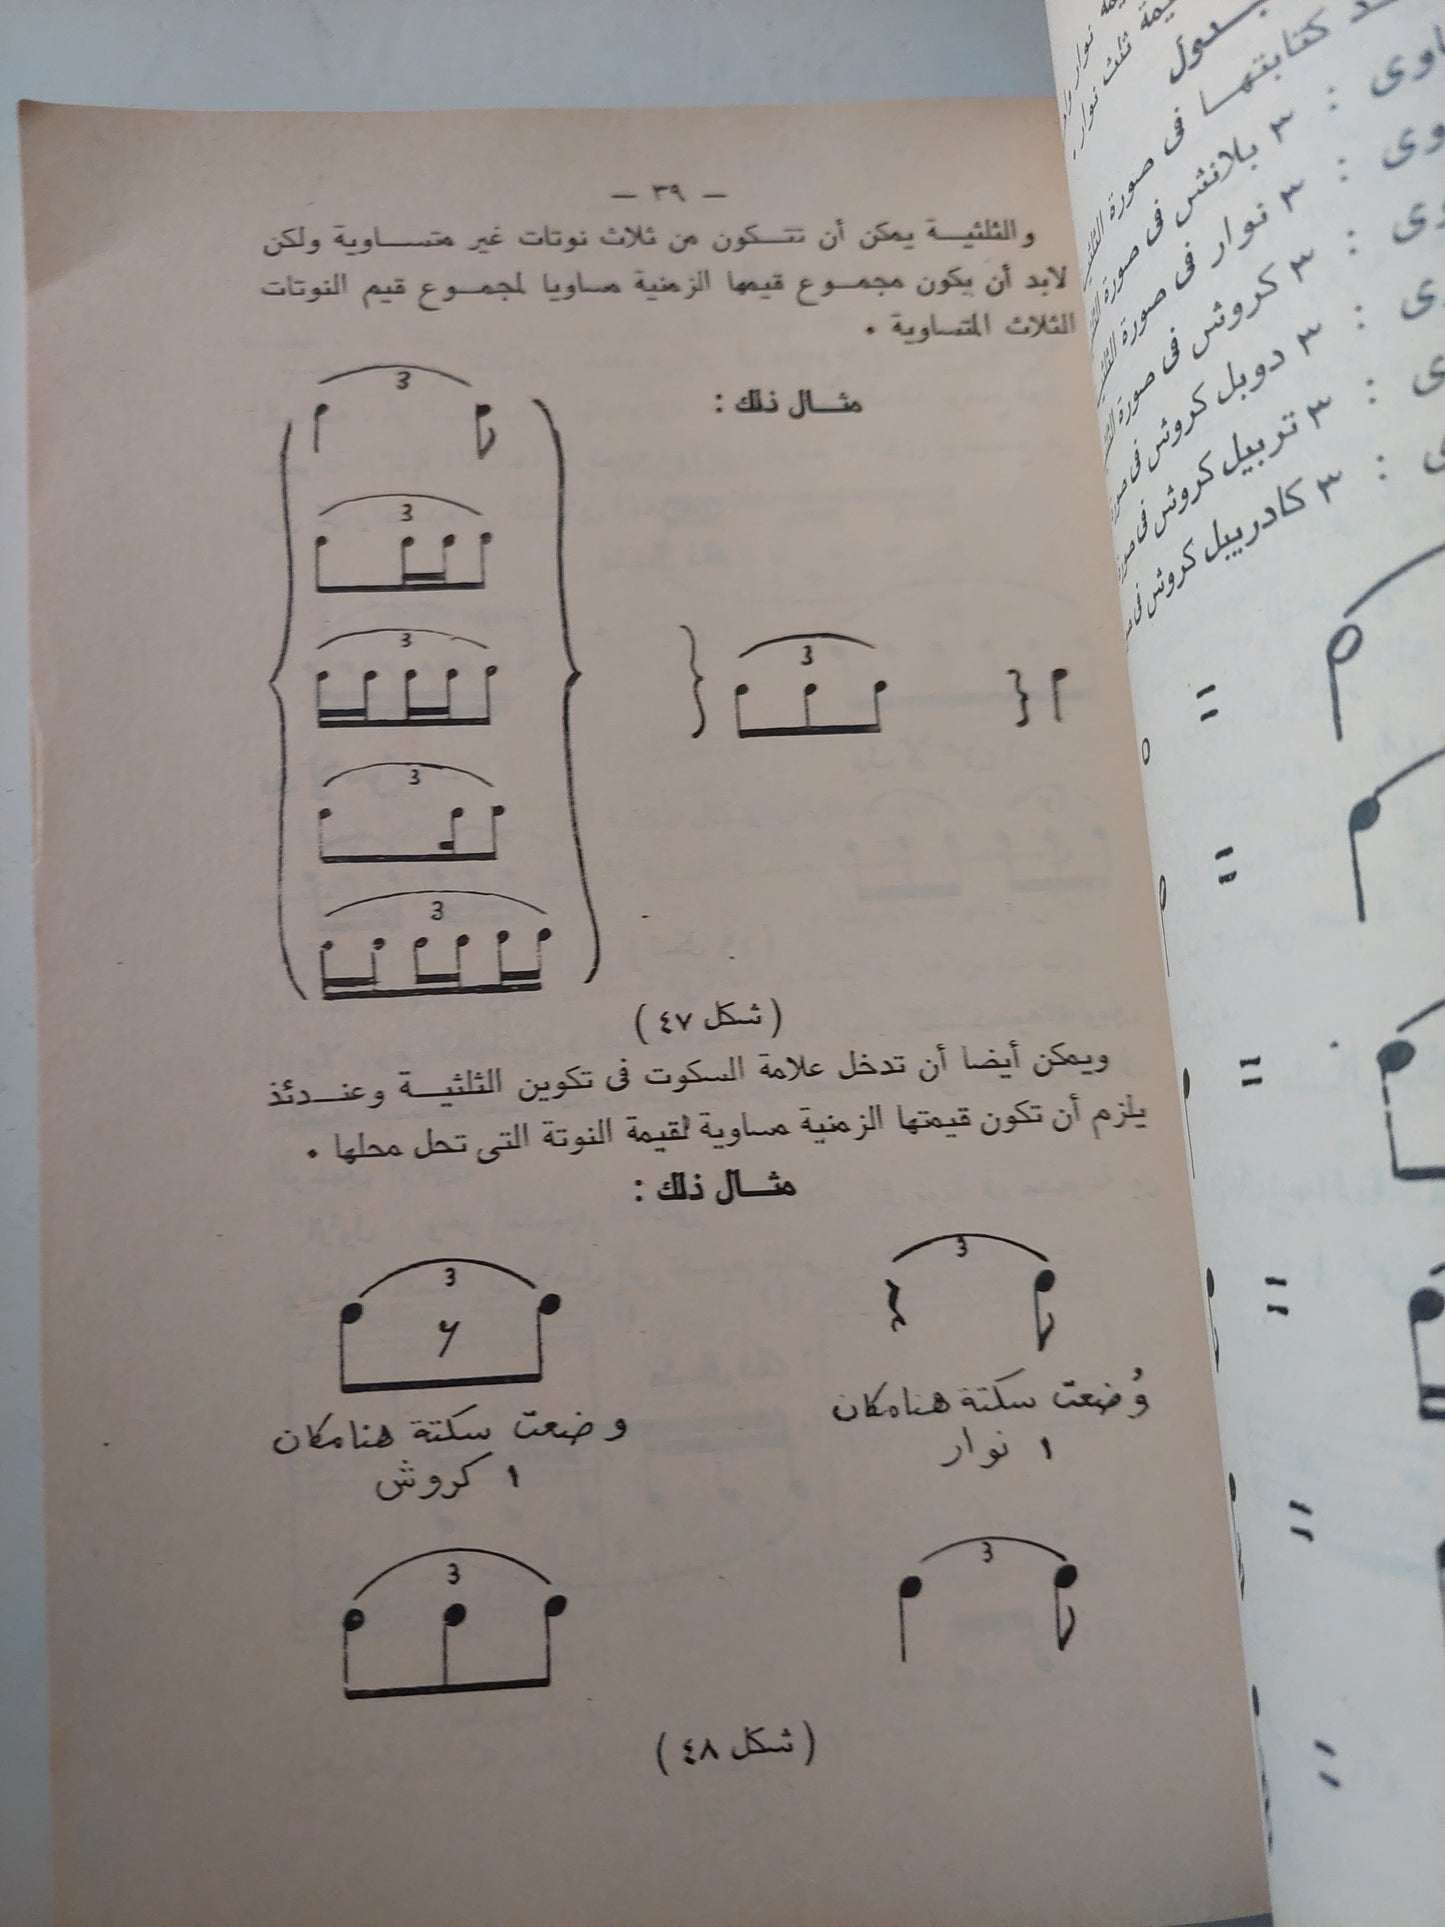 — ٣٩ —
والثلثيــة يمكن أن تتــكون من ثلاث نوتات غير متســاوية ولكن
لابد أن يكون مجمــوع قيمها الزمنية مساويا لمجمــوع قيم النوتات
الثلاث المتساوية .
مثــال ذلك :
3
3
3
3
3
3
( شكل ٤٧ )
ويمكن أيضا أن تدخل علامة السكوت فى تكوين الثلثيــة وعنــدئذ
يلزم أن تكون قيمتها الزمنية مساوية لقيمة النوتة التى تحل محلها .
مثــال ذلك :
3
3
وُضعت سكتة هنا مكان
١ نوار
وضعت سكتة هنا مكان
١ كروش
3
3
( شكل ٤٨ )
ثلث نوار
كتابتها فى صورة
: ٣ بلانش فى صورة
: ٣ نوار فى صورة
: ٣ كروش فى صورة
: ٣ دوبل كروش فى
: ٣ تربيل كروش فى
: ٣ كادرييل كروش فى
=
=
=
=
=
=